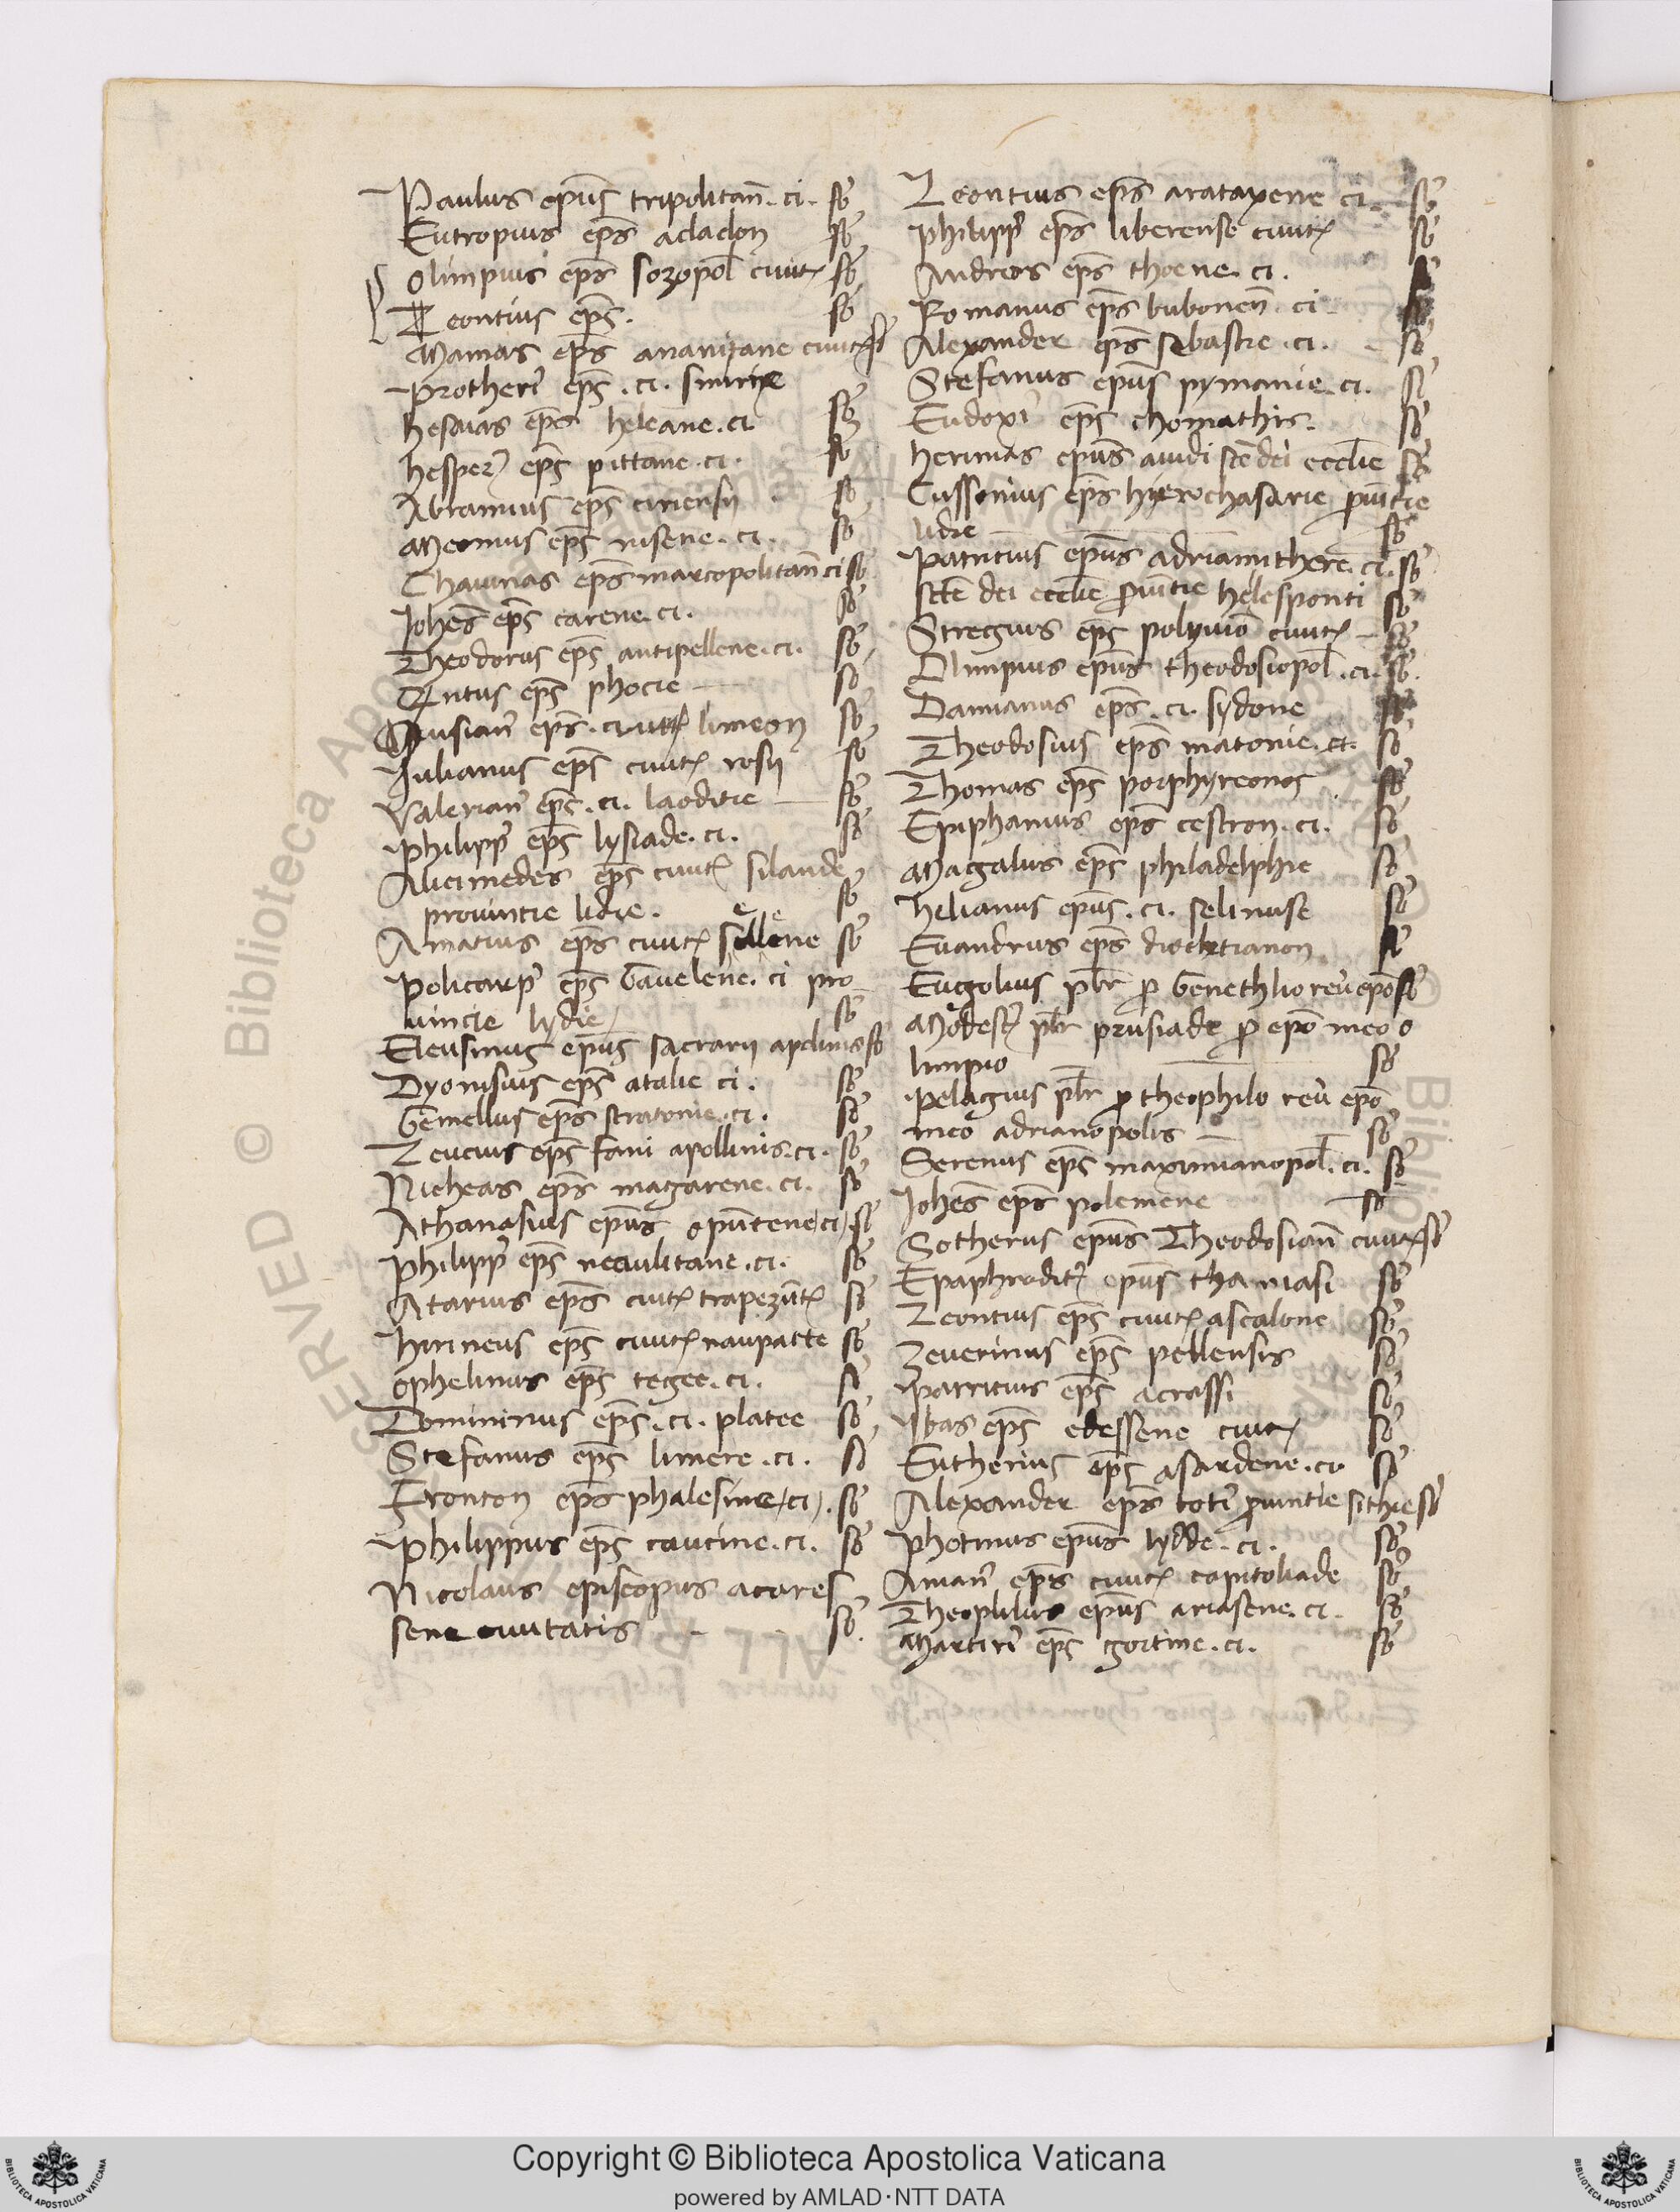 Paulus ep̄us tripolitañ. ci. sb̄
Eutropius ep̄s adadon sb̄
Olimpius ep̄s sozopol̄ ciuit sb̄
Leontius ep̄s. sb̄
Mamas ep̄s ananizane ciuit sb̄
Protheri ep̄s. ci. smirne
hesaias ep̄s heleane. ci sb̄
hesper ep̄s pittane. ci. sb̄
Abramius ep̄s ciriensij sb̄
Meomus ep̄s nisene. ci. sb̄
Chaiumas ep̄s marcopolitañ ci sb̄
Joh̄es ep̄s carene. ci. sb̄
Theodorus ep̄s antipellene. ci. sb̄
Quitus ep̄s phocie sb̄
ep̄s. ciuit limeon sb̄
Julianus ep̄s ciuit rosij sb̄
Valerian ep̄s. ci. laoditie sb̄
Philipp ep̄s lysiade. ci. sb̄
Alicimedes ep̄s ciuit silande
prouintie lidie. sb̄
Amatius ep̄s ciuit sellene sb̄
Policarp ep̄s Gauelene. ci pro
uincie lydie sb̄
Eleusinus ep̄us sacrarij aplinis sb̄
Dyonisius ep̄s atalie ci. sb̄
Gemellus ep̄s stratonie. ci. sb̄
Leucius ep̄s fani apollinis. ci. sb̄
Nicheas ep̄s magarene. ci. sb̄
Athanasius ep̄us opuntene ci sb̄
Philipp ep̄s neaulitane. ci. sb̄
Atarius ep̄s ciuit trapezunt sb̄
Hirineus ep̄s ciuit naupatte sb̄
Ophelinus ep̄s tegee. ci. sb̄
Domininus ep̄s. ci. platee sb̄
Stefanus ep̄s limere. ci. sb̄
Fronton ep̄s phalesine ci. sb̄
Philippus ep̄s caucine. ci. sb̄
Nicolaus episcopus acares
sene ciuitatis sb̄.
Leontius ep̄s arataxene ci. sb̄
Philipp ep̄s liberense ciuit sb̄
Andreas ep̄s thoene. ci. sb̄
Romanus ep̄s buboneñ. ci sb̄
Alexander ep̄s sebastie. ci. sb̄
Stefanus ep̄us pymanie. ci. sb̄
Eudoxi ep̄s chomathis. sb̄
herimas ep̄us auidi sc̄e dei eccl̄ie sb̄
Cussonius ep̄s hierochasarie ꝓuintie
lidie sb̄
Patritius ep̄us adrianuthere. ci. sb̄
sc̄te dei eccl̄ie ꝓuintie helesponti sb̄
Stregius ep̄s ciuit sb̄
Olimpius ep̄us theodosiopol̄. ci. sb̄.
Damianus ep̄s. ci. sydone sb̄
Theodosius ep̄s matonie. ci. sb̄
Thomas ep̄s porphyreonos sb̄
Epiphanius ep̄s cestron. ci. sb̄
Magalus ep̄s philadelphie sb̄
helianus ep̄us. ci. selinuse sb̄
Euandrus ep̄s diocletianon sb̄
Eugolius pb̄r ꝓ Genethlio reu ep̄o sb̄
Modest pb̄r prusiade ꝓ ep̄o meo o
limpio sb̄
Pelagius pb̄r ꝓ theophilo reu ep̄o
meo adrianopolis sb̄
Serenus ep̄s maximianopol̄. ci. sb̄
Joh̄es ep̄s polemene sb̄
Sotherus ep̄us Theodosiañ ciuit sb̄
Epaphrodit ep̄us thamasi sb̄
Leontius ep̄s ciuit ascalone sb̄
Zeuerinus ep̄s pellensis sb̄
Parritius ep̄s acrassi sb̄
Ybas ep̄s edessene ciuit sb̄
Eutherius ep̄s asardene. ci. sb̄
Alexander ep̄s toti ꝓuintie sithie sb̄
Photinus ep̄us lydde. ci. sb̄
Anian ep̄s ciuit capitoliade sb̄
Theophilus ep̄us ariasene. ci. sb̄
Martiri ep̄s gortine. ci. sb̄
© Biblioteca Apostolica Vaticana
Copyright © Biblioteca Apostolica Vaticana
powered by AMLAD·NTT DATA
BIBLIOTECA APOSTOLICA VATICANA
BIBLIOTECA APOSTOLICA VATICANA